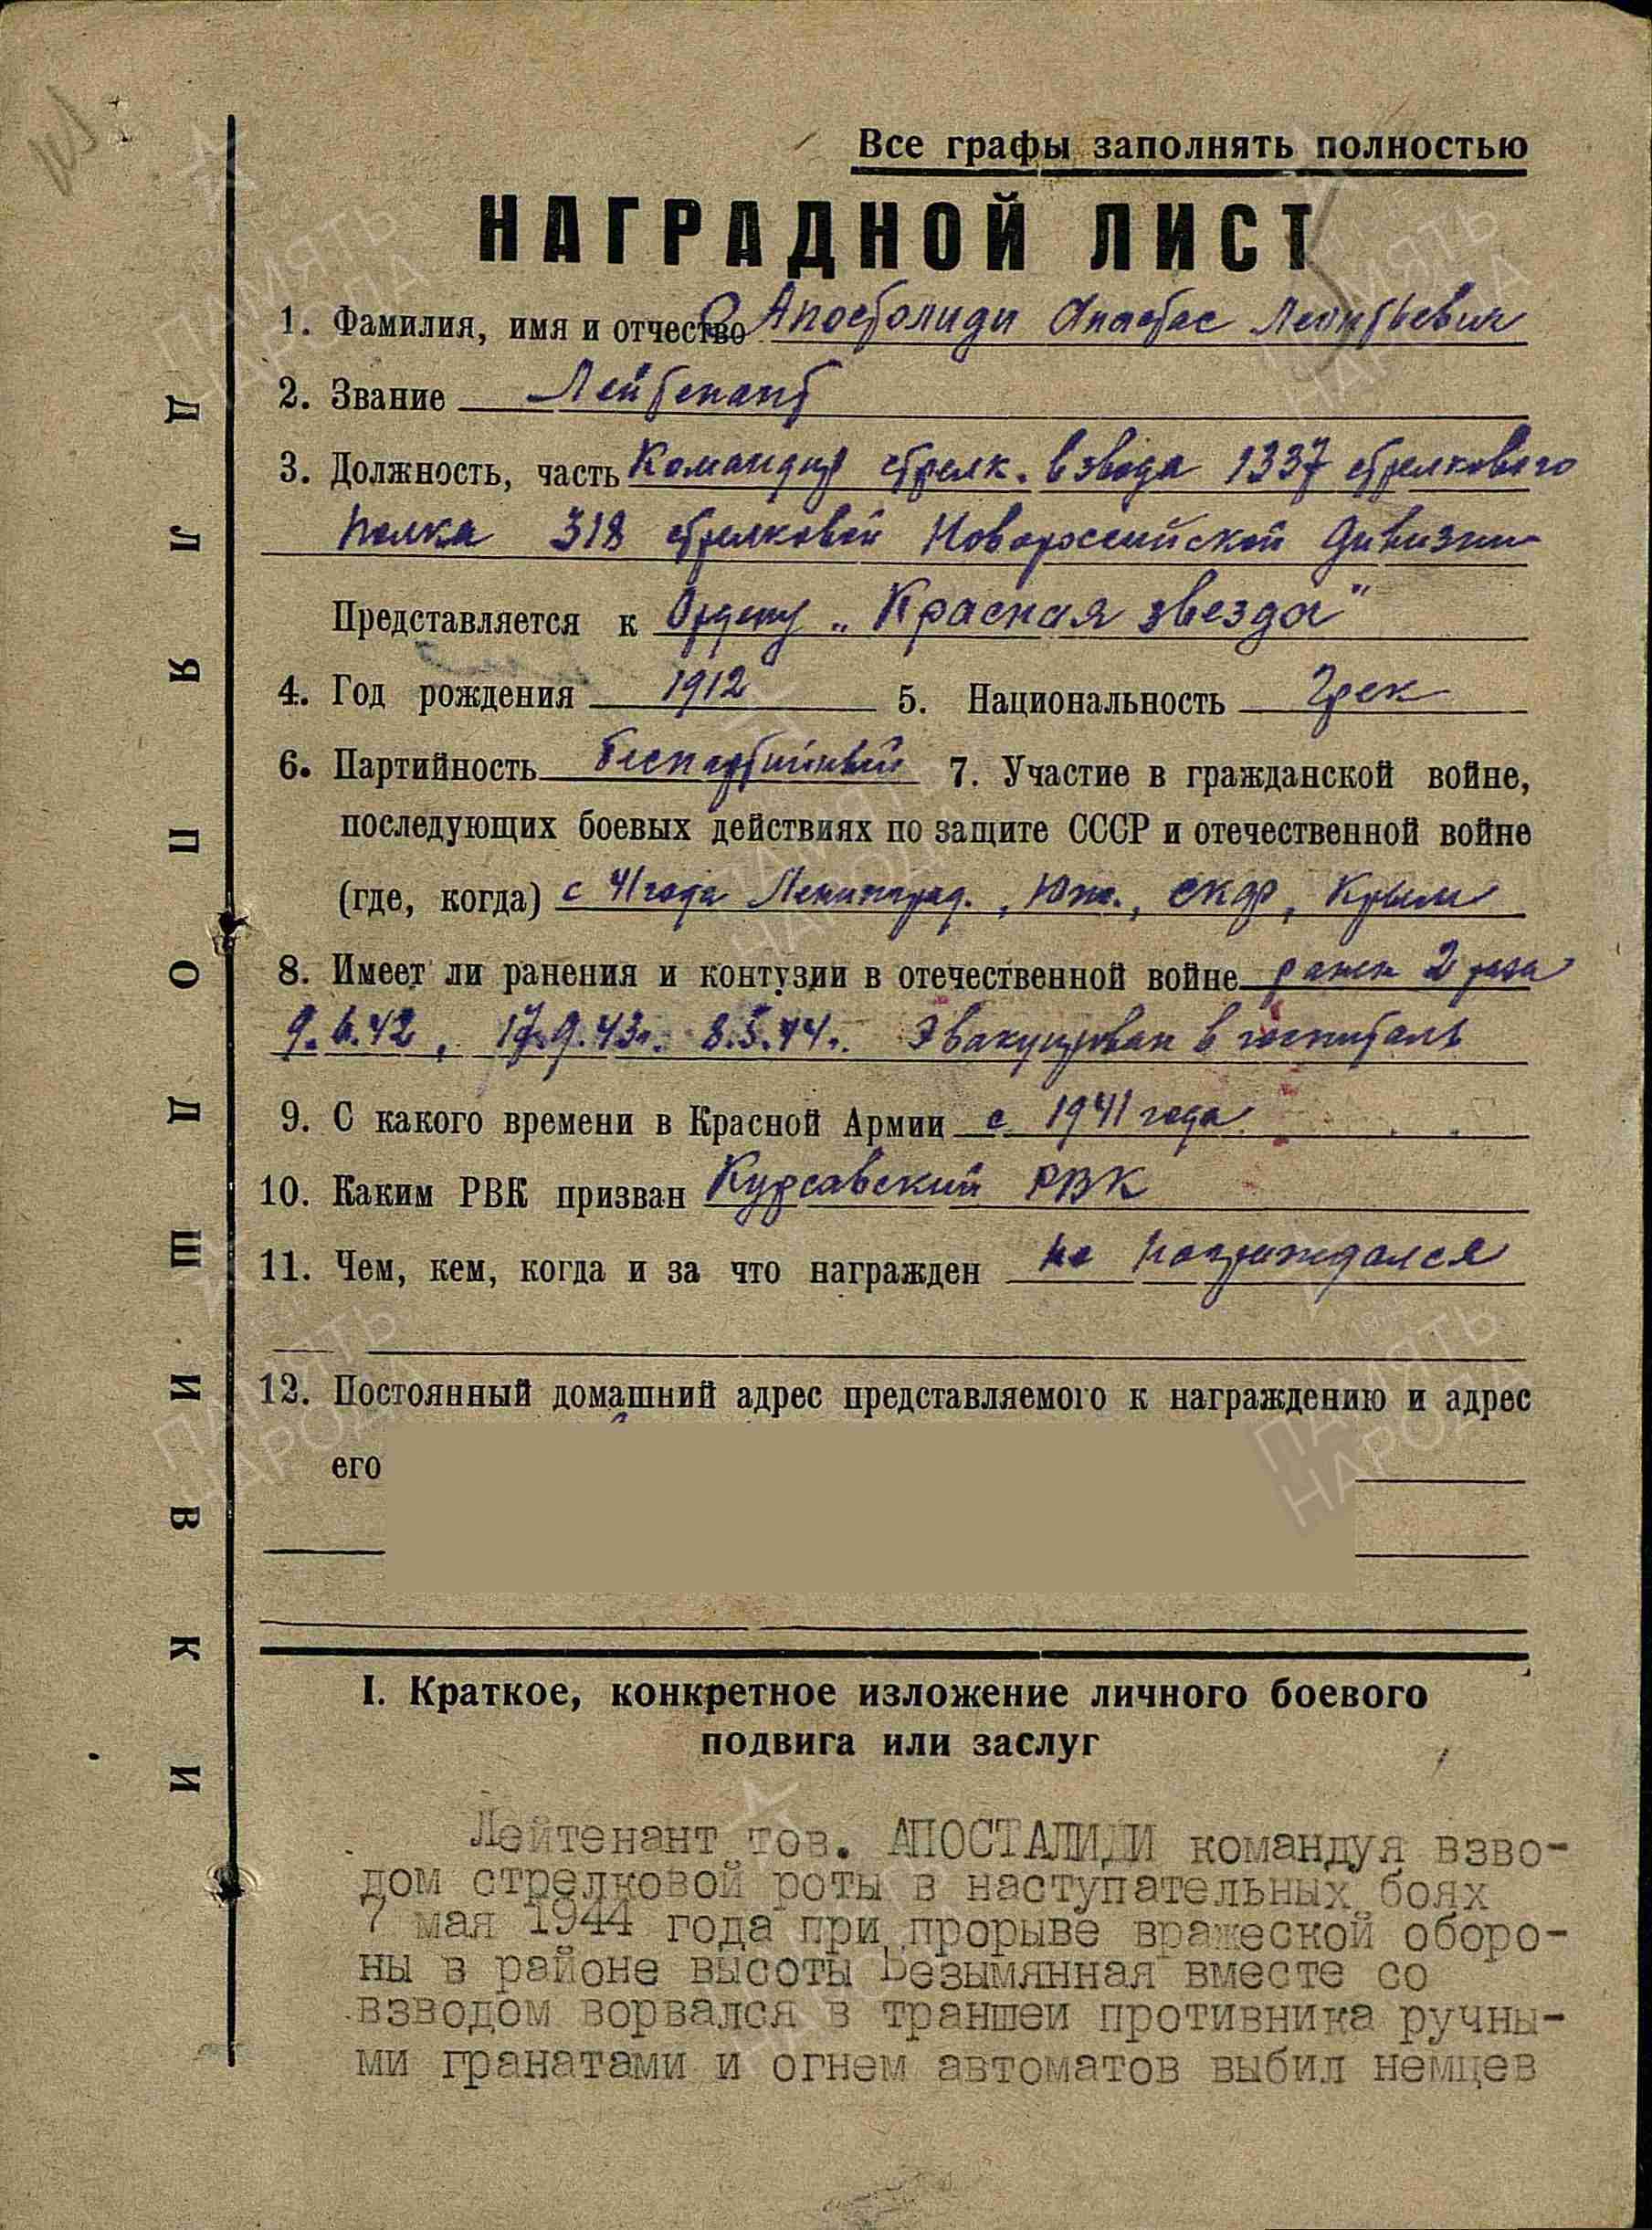 Все графы заполнять полностью
НАГРАДНОЙ ЛИСТ
1. Фамилия, имя и отчество Апостолиди Анастас Леонтьевич
2. Звание Лейтенант
3. Должность, часть Командир стрелк. взвода 1337 стрелкового
полка 318 стрелковой Новороссийской дивизии
Представляется к Ордену „Красная звезда"
4. Год рождения 1912 5. Национальность Грек
6. Партийность беспартийный 7. Участие в гражданской войне,
последующих боевых действиях по защите СССР и отечественной войне
(где, когда) с 41 года Ленинград., Юж., СКФ, Крым
8. Имеет ли ранения и контузии в отечественной войне ранен 2 раза
9.6.42, 17.9.43г. 8.5.44г. Эвакуирован в госпиталь
9. С какого времени в Красной Армии с 1941 года
10. Каким РВК призван Курсавский РВК
11. Чем, кем, когда и за что награжден не награждался
12. Постоянный домашний адрес представляемого к награждению и адрес
его
I. Краткое, конкретное изложение личного боевого
подвига или заслуг
Лейтенант тов. АПОСТАЛИДИ командуя взво-
дом стрелковой роты в наступательных боях
7 мая 1944 года при прорыве вражеской оборо-
ны в районе высоты Безымянная вместе со
взводом ворвался в траншеи противника ручны-
ми гранатами и огнем автоматов выбил немцев
ДЛЯ ПОДШИВКИ
ПАМЯТЬ
НАРОДА
ПАМЯТЬ
НАРОДА
ПАМЯТЬ
НАРОДА
ПАМЯТЬ
НАРОДА
ПАМЯТЬ
НАРОДА